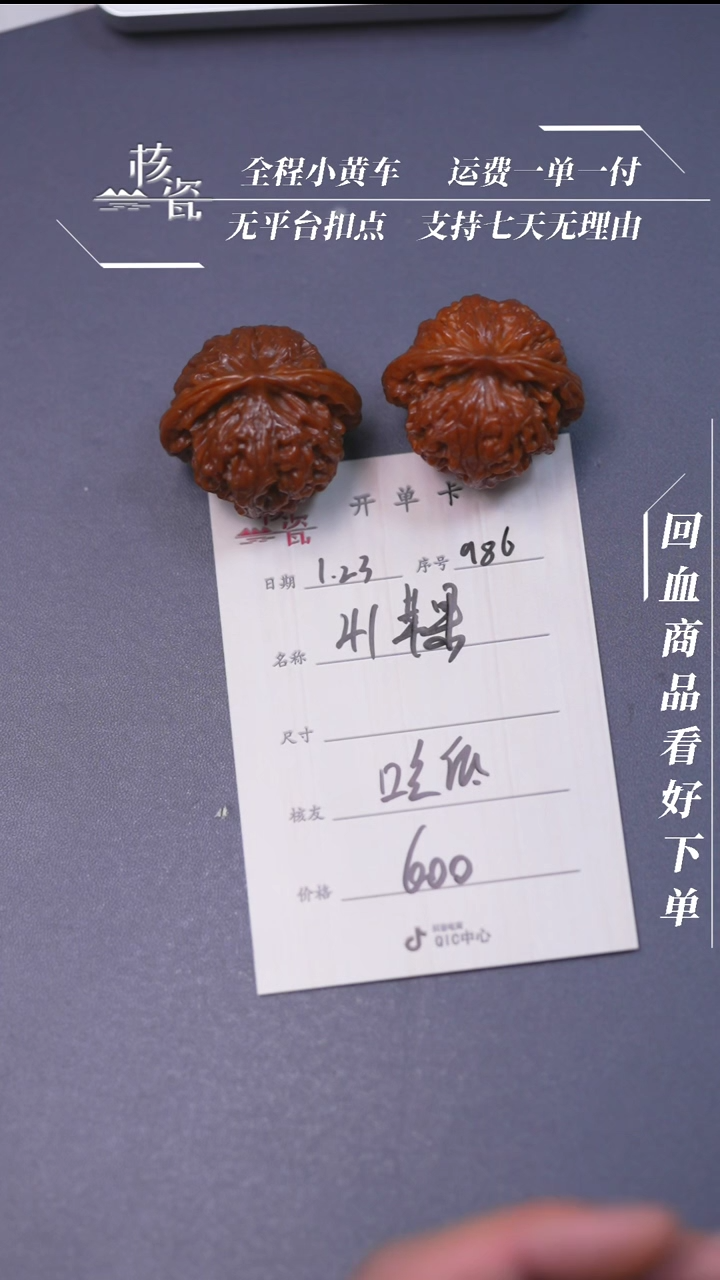 核瓷
全程小黄车 运费一单一付
无平台扣点 支持七天无理由
回血商品看好下单
开单卡
日期 1.23 序号 986
名称 41苹果
尺寸
核友
价格 600
QIC中心